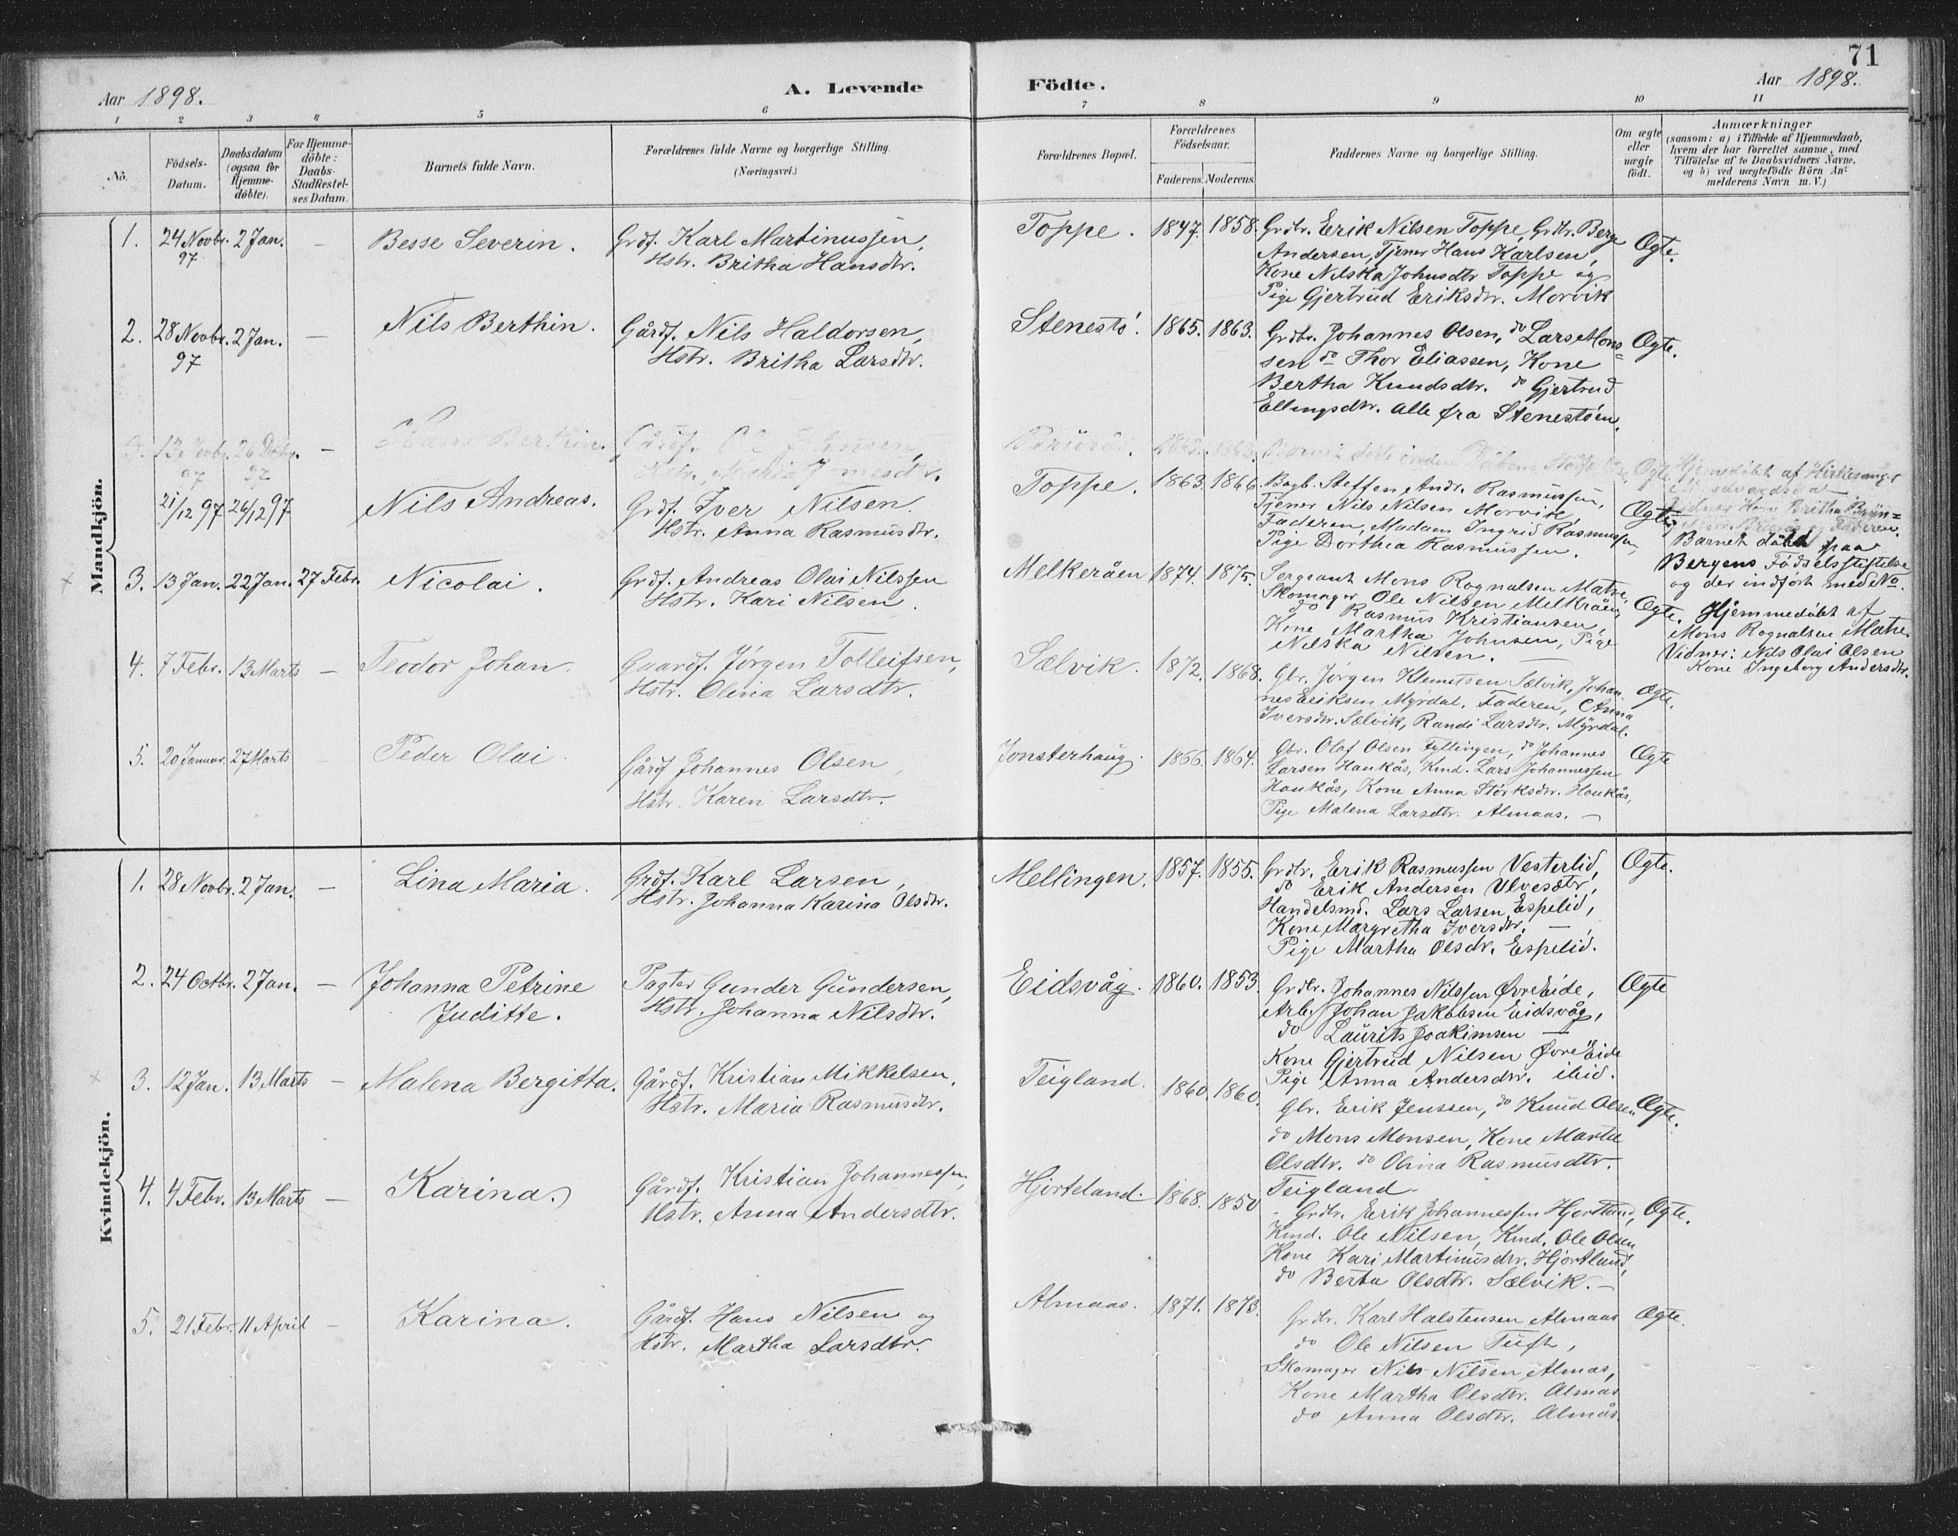 71
Aar 1898.
A. Levende
Födte.
Aar 1898.
1 2 3 4 5 6 7 8 9 10 11
No.
Födsels-
Datum.
Daabsdatum
(ogsaa for
Hjemme-
döbte).
For Hjemme-
döbte:
Daabs-
Stadfæstel-
ses Datum.
Barnets fulde Navn.
Forældrenes fulde Navne og borgerlige Stilling.
(Næringsvei.)
Forældrenes Bopæl.
Forældrenes
Födselsaar.
Faderens. Moderens.
Faddernes Navne og borgerlige Stilling.
Om ægte
eller
uægte
födt.
Anmærkninger
(sansom: a) i Tilfælde af Hjemmedaab,
hvem der har forrettet samme, med
Tilföielse af to Daabsvidners Navne,
og b) ved uægtefödte Börn An-
melderens Navn m. V.)
Mandkjön.
1. 24 Novbr. 2 Jan. –
97
Besse Severin.
Grdf. Karl Martinussen,
Hstr. Britha Hansdtr.
Toppe. 1847. 1858.
Grdbr. Erik Nilsen Toppe, Grdbr. Berge
Andersen, Tjener Hans Karlsen,
Kone Nilska Johnsdtr Toppe og
Pige Gjertrud Eriksdtr. Morvik
Ægte.
2. 28 Novbr. 2 Jan. –
97
Nils Berthin.
Gårdf. Nils Haldorsen,
Hstr. Britha Larsdtr.
Stenestö. 1865. 1863.
Grdbr. Johannes Olsen, do Lars Mons-
sen do Thor Eliassen, Kone
Bertha Knudsdtr. do Gjertrud
Ellingsdtr. Alle fra Stenestöen.
Ægte.
97 97
Berthin.
Gårdf. Ole
Hstr.
1863. 1863.
Ægte
Hjemedöbt af
21/12 97 26/12 97
Nils Andreas.
Grdf. Iver Nilsen.
Hstr. Anna Rasmusdtr.
Toppe. 1863. 1866.
Steffen Andr. Rasmussen,
Tjener Nils Nilsen Morvik,
Faderen, Madam Ingrid Rasmussen,
Pige Dorthea Rasmussen.
Ægte.
Barnet döbt paa
Bergens Födselsstiftelse
og der indfört med No
3. 13 Jan. 22 Jan. 27 Febr.
Nicolai.
Grdf. Andreas Olai Nilssen
Hstr. Kari Nilsen.
Melkeråen 1874. 1875.
Sergeant Mons Rognalsen Matre,
Skomager Ole Nilsen Melkråen,
do Rasmus Kristiansen,
Kone Martha Johnsen, Pige
Nilska Nilsen. –
Ægte.
Hjemmedöbt af
Mons Rognalsen Matre.
Vidner: Nils Olai Olsen
Kone Ingeborg Andersdtr.
4. 7 Febr. 13 Marts –
Teodor Johan.
Gaardf. Jørgen Tolleifsen,
Hstr. Olina Larsdtr.
Sælvik. 1872. 1868.
Gbr. Jörgen Klemetsen Sælvik, Johan-
nes Eriksen Myrdal, Faderen, Anna
Iversdtr. Sælvik, Randi Larsdtr. Myrdal.
Ægte.
5. 20 Januar. 27 Marts
Peder Olai
Gårdf Johannes Olsen,
Hstr. Karen Larsdtr.
Jonsterhaug. 1866. 1864.
Gbr. Olaf Olsen Fyllingen, do Johannes
Larsen Haukås, Kmd. Lars Johannessen
Haukås, Kone Anna Störksdtr. Haukås,
Pige Malena Larsdtr. Almaas. –
Ægte
Kvindekjön.
1. 28 Novbr. 2 Jan. –
Lina Maria.
Grdf. Karl Larsen,
Hstr. Johanna Karina Olsdtr.
Mellingen. 1857. 1855.
Grdbr. Erik Rasmussen Vesterlid,
do Erik Andersen Ulvesætr,
Handelsmd. Lars Larsen Espelid,
Kone Margretha Iversdtr. –,
Pige Martha Olsdtr. Espelid.
Ægte.
2. 24 Octbr. 2 Jan. –
Johanna Petrine
Juditte.
Pagter Gunder Gundersen,
Hstr. Johanna Nilsdtr.
Eidsvåg. 1860. 1853.
Grdbr. Johannes Nilssen Øvre Eide,
Arb. Johan Jakobsen Eidsvåg,
do Laurits Joakimsen –
Kone Gjertrud Nilsen Øvre Eide
Pige Anna Andersdtr. ibid.
Ægte
3. 12 Jan. 13 Marts –
Malena Bergitta.
Gårdf. Kristian Mikkelsen,
Hstr. Maria Rasmusdtr.
Teigland. 1860. 1860.
Gbr. Erik Jenssen, do Knud Olsen
do Mons Monsen, Kone Marta
Olsdtr. do Olina Rasmusdtr.
Teigland.
Ægte.
4. 4 Febr. 13 Marts –
Karina.
Gårdf. Kristian Johannessen,
Hstr. Anna Andersdtr.
Hjorteland. 1868. 1850
Grdbr. Erik Johannessen Hjortland,
Kmd. Ole Nilsen, Kmd. Ole Olsen
Kone Kari Martinusdtr. Hjortland,
do Berta Olsdtr. Sælvik. –
Ægte.
5. 21 Febr. 11 April –
Karina.
Gårdf. Hans Nilsen og
Hstr. Martha Larsdtr.
Almaas. 1871. 1873.
Grdbr. Karl Halstensen Almaas
do Ole Nilsen Tuft,
Skomager Nils Nilsen Almaas,
Kone Martha Olsdtr. Almas
do Anna Olsdtr. Almås
Ægte.